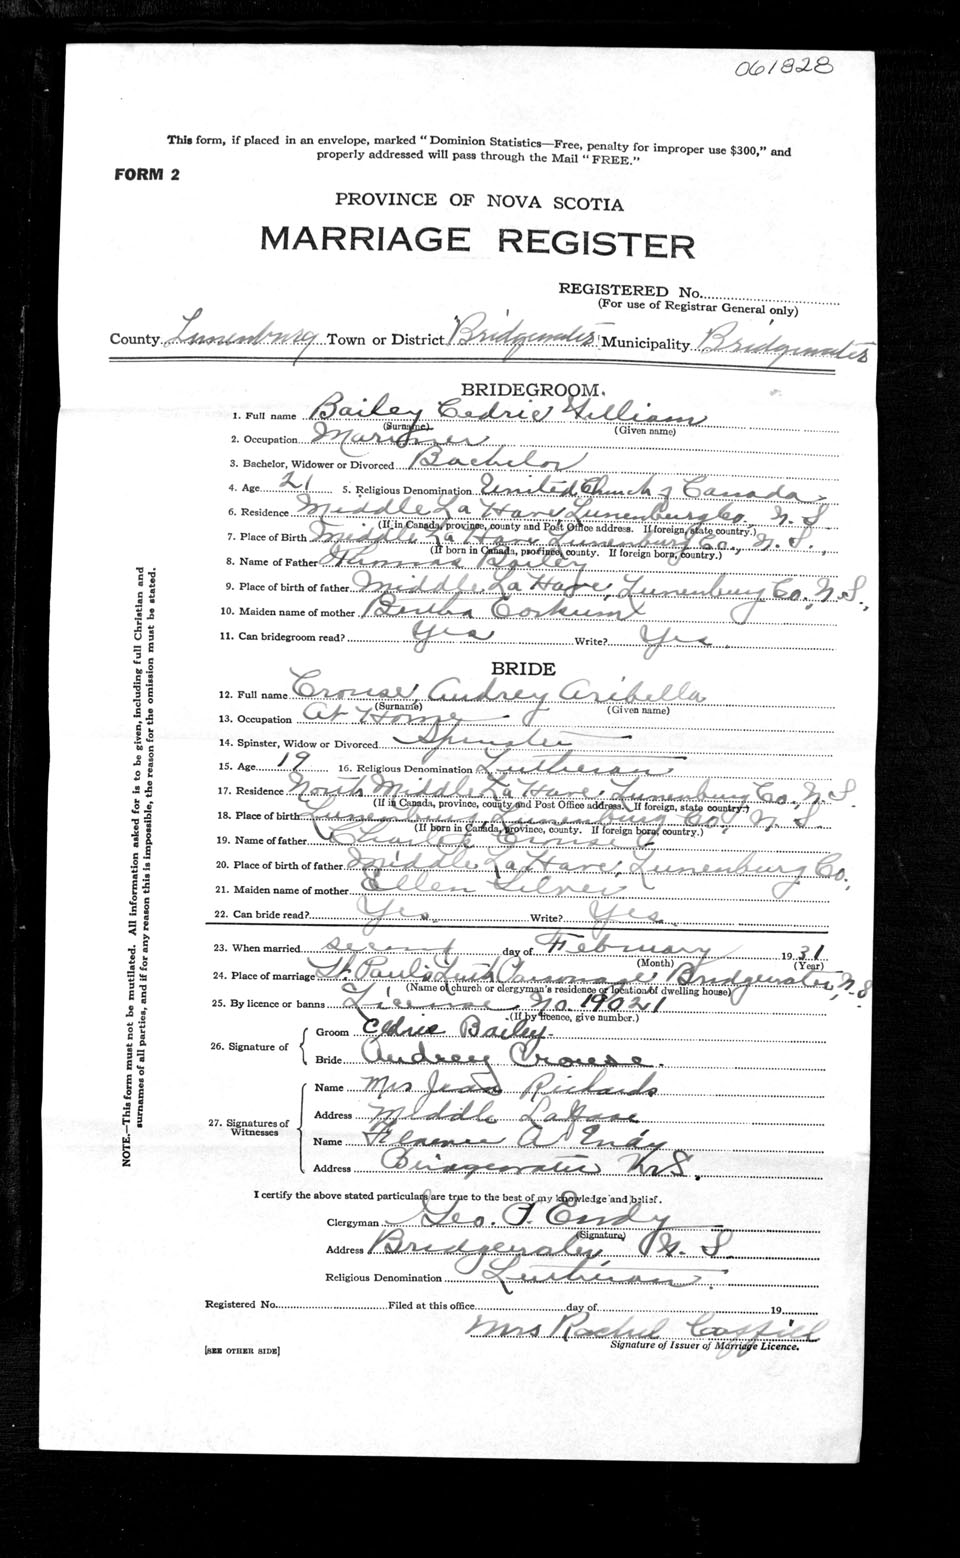 061828
This form, if placed in an envelope, marked "Dominion Statistics—Free, penalty for improper use $300," and
properly addressed will pass through the Mail "FREE."
FORM 2
PROVINCE OF NOVA SCOTIA
MARRIAGE REGISTER
REGISTERED No.
(For use of Registrar General only)
County Lunenburg Town or District Bridgewater Municipality Bridgewater
BRIDEGROOM.
1. Full name Bailey Cedric William
(Surname) (Given name)
2. Occupation Mariner
3. Bachelor, Widower or Divorced Bachelor
4. Age 21 5. Religious Denomination United Church of Canada
6. Residence Middle La Have Lunenburg Co., N. S.
(If in Canada, province, county and Post Office address. If foreign, state country.)
7. Place of Birth Middle La Have Lunenburg Co., N. S.,
(If born in Canada, province, county. If foreign born, country.)
8. Name of Father Thomas Bailey
9. Place of birth of father Middle La Have, Lunenburg Co., N. S.,
10. Maiden name of mother Bertha Corkum
11. Can bridegroom read? Yes Write? Yes.
BRIDE
12. Full name Crouse, Audrey Aribella
(Surname) (Given name)
13. Occupation At Home
14. Spinster, Widow or Divorced Spinster
15. Age 19 16. Religious Denomination Lutheran
17. Residence North Middle La Have, Lunenburg Co., N. S.
(If in Canada, province, county and Post Office address. If foreign, state country.)
18. Place of birth Lunenburg, Lunenburg Co., N. S.
(If born in Canada, province, county. If foreign born, country.)
19. Name of father Crouse
20. Place of birth of father Middle La Have, Lunenburg Co.,
21. Maiden name of mother Ellen Silver
22. Can bride read? Yes. Write? Yes.
23. When married second day of February 1931
(Month) (Year)
24. Place of marriage St. Paul's Luth Parsonage, Bridgewater, N. S
(Name of church or clergyman's residence or location of dwelling house)
25. By licence or banns License No. 19021
(If by licence, give number.)
26. Signature of
Groom Cedric Bailey.
Bride Audrey Crouse.
27. Signatures of
Witnesses
Name Mrs Richards
Address Middle LaHave
Name Florence A Endy
Address Bridgewater N.S.
I certify the above stated particulars are true to the best of my knowledge and belief.
Clergyman Geo. F. Endy
(Signature)
Address Bridgewater, N. S.
Religious Denomination Lutheran.
Registered No. Filed at this office day of 19
Mrs Rachel
Signature of Issuer of Marriage Licence.
[SEE OTHER SIDE]
NOTE.—This form must not be mutilated. All information asked for is to be given, including full Christian and
surnames of all parties, and if for any reason this is impossible, the reason for the omission must be stated.